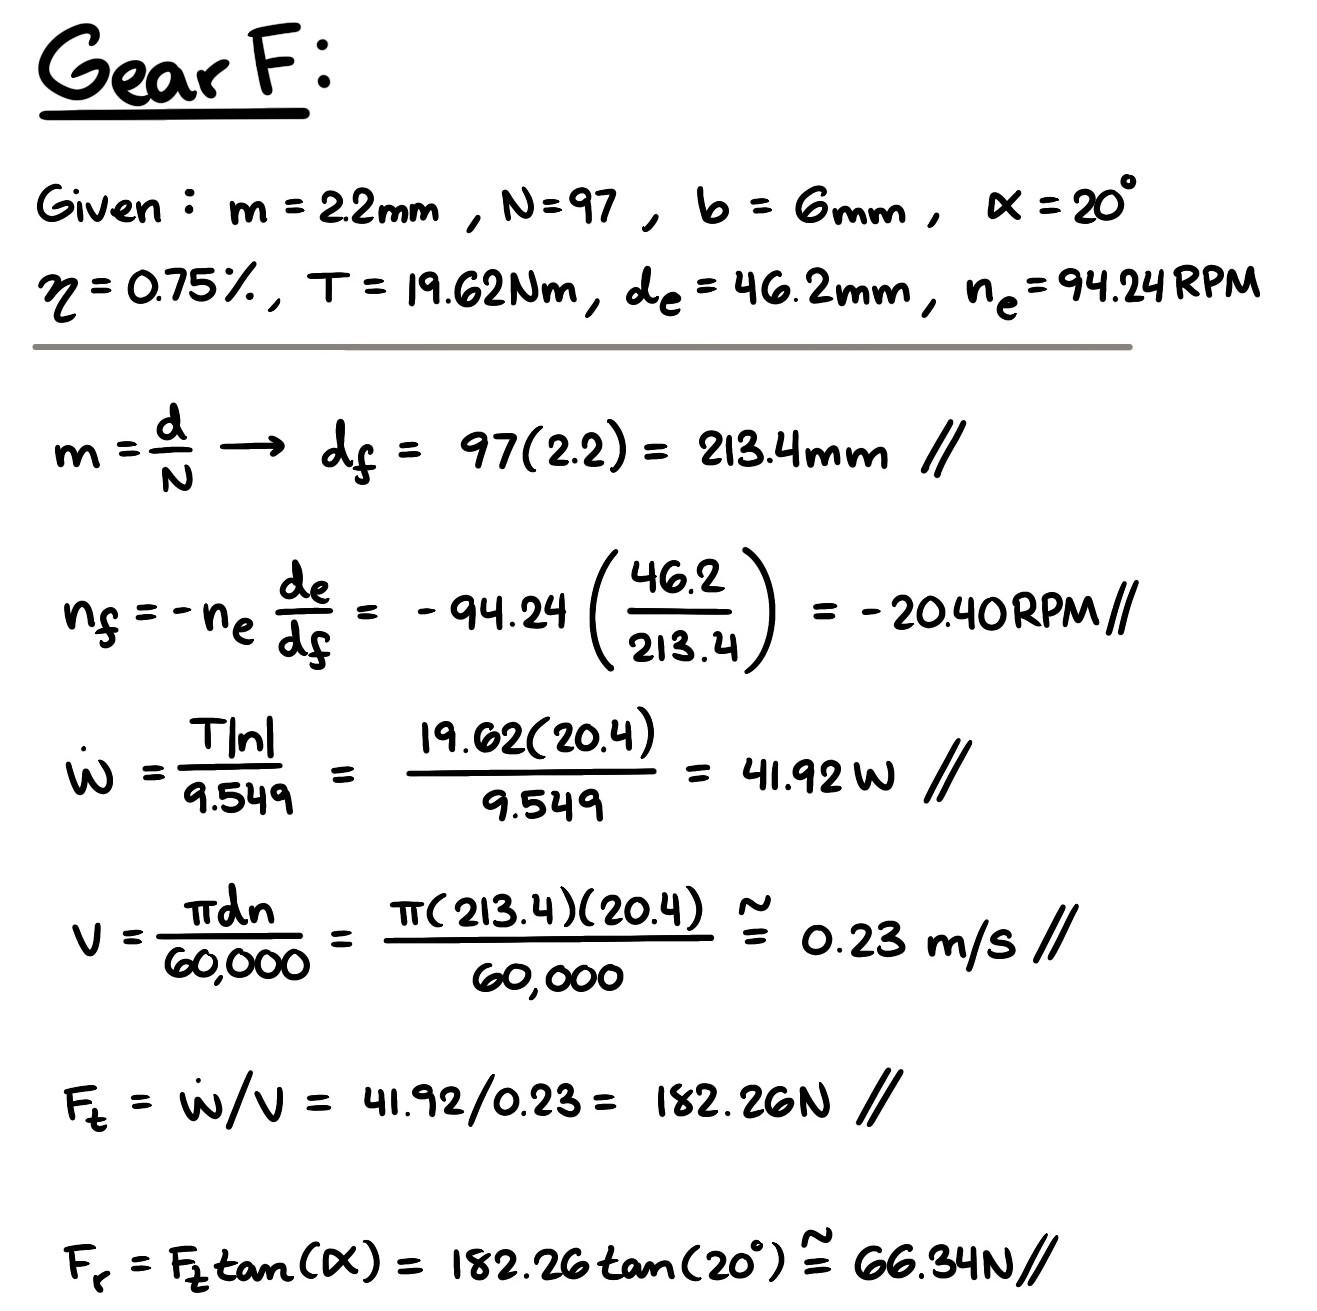 Gear F:
Given : m = 2.2mm , N=97 , b = 6mm , α = 20°
η = 0.75%, T = 19.62Nm, de = 46.2mm, ne = 94.24 RPM
m = d/N → df = 97(2.2) = 213.4mm //
nf = -ne de/df = -94.24 (46.2/213.4) = -20.40 RPM //
ẇ = T|n|/9.549 = 19.62(20.4)/9.549 = 41.92 W //
V = πdn/60,000 = π(213.4)(20.4)/60,000 ≅ 0.23 m/s //
Ft = ẇ/V = 41.92/0.23 = 182.26N //
Fr = Ft tan(α) = 182.26 tan(20°) ≅ 66.34N //